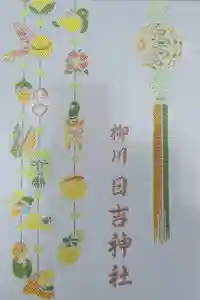 柳川日吉神社